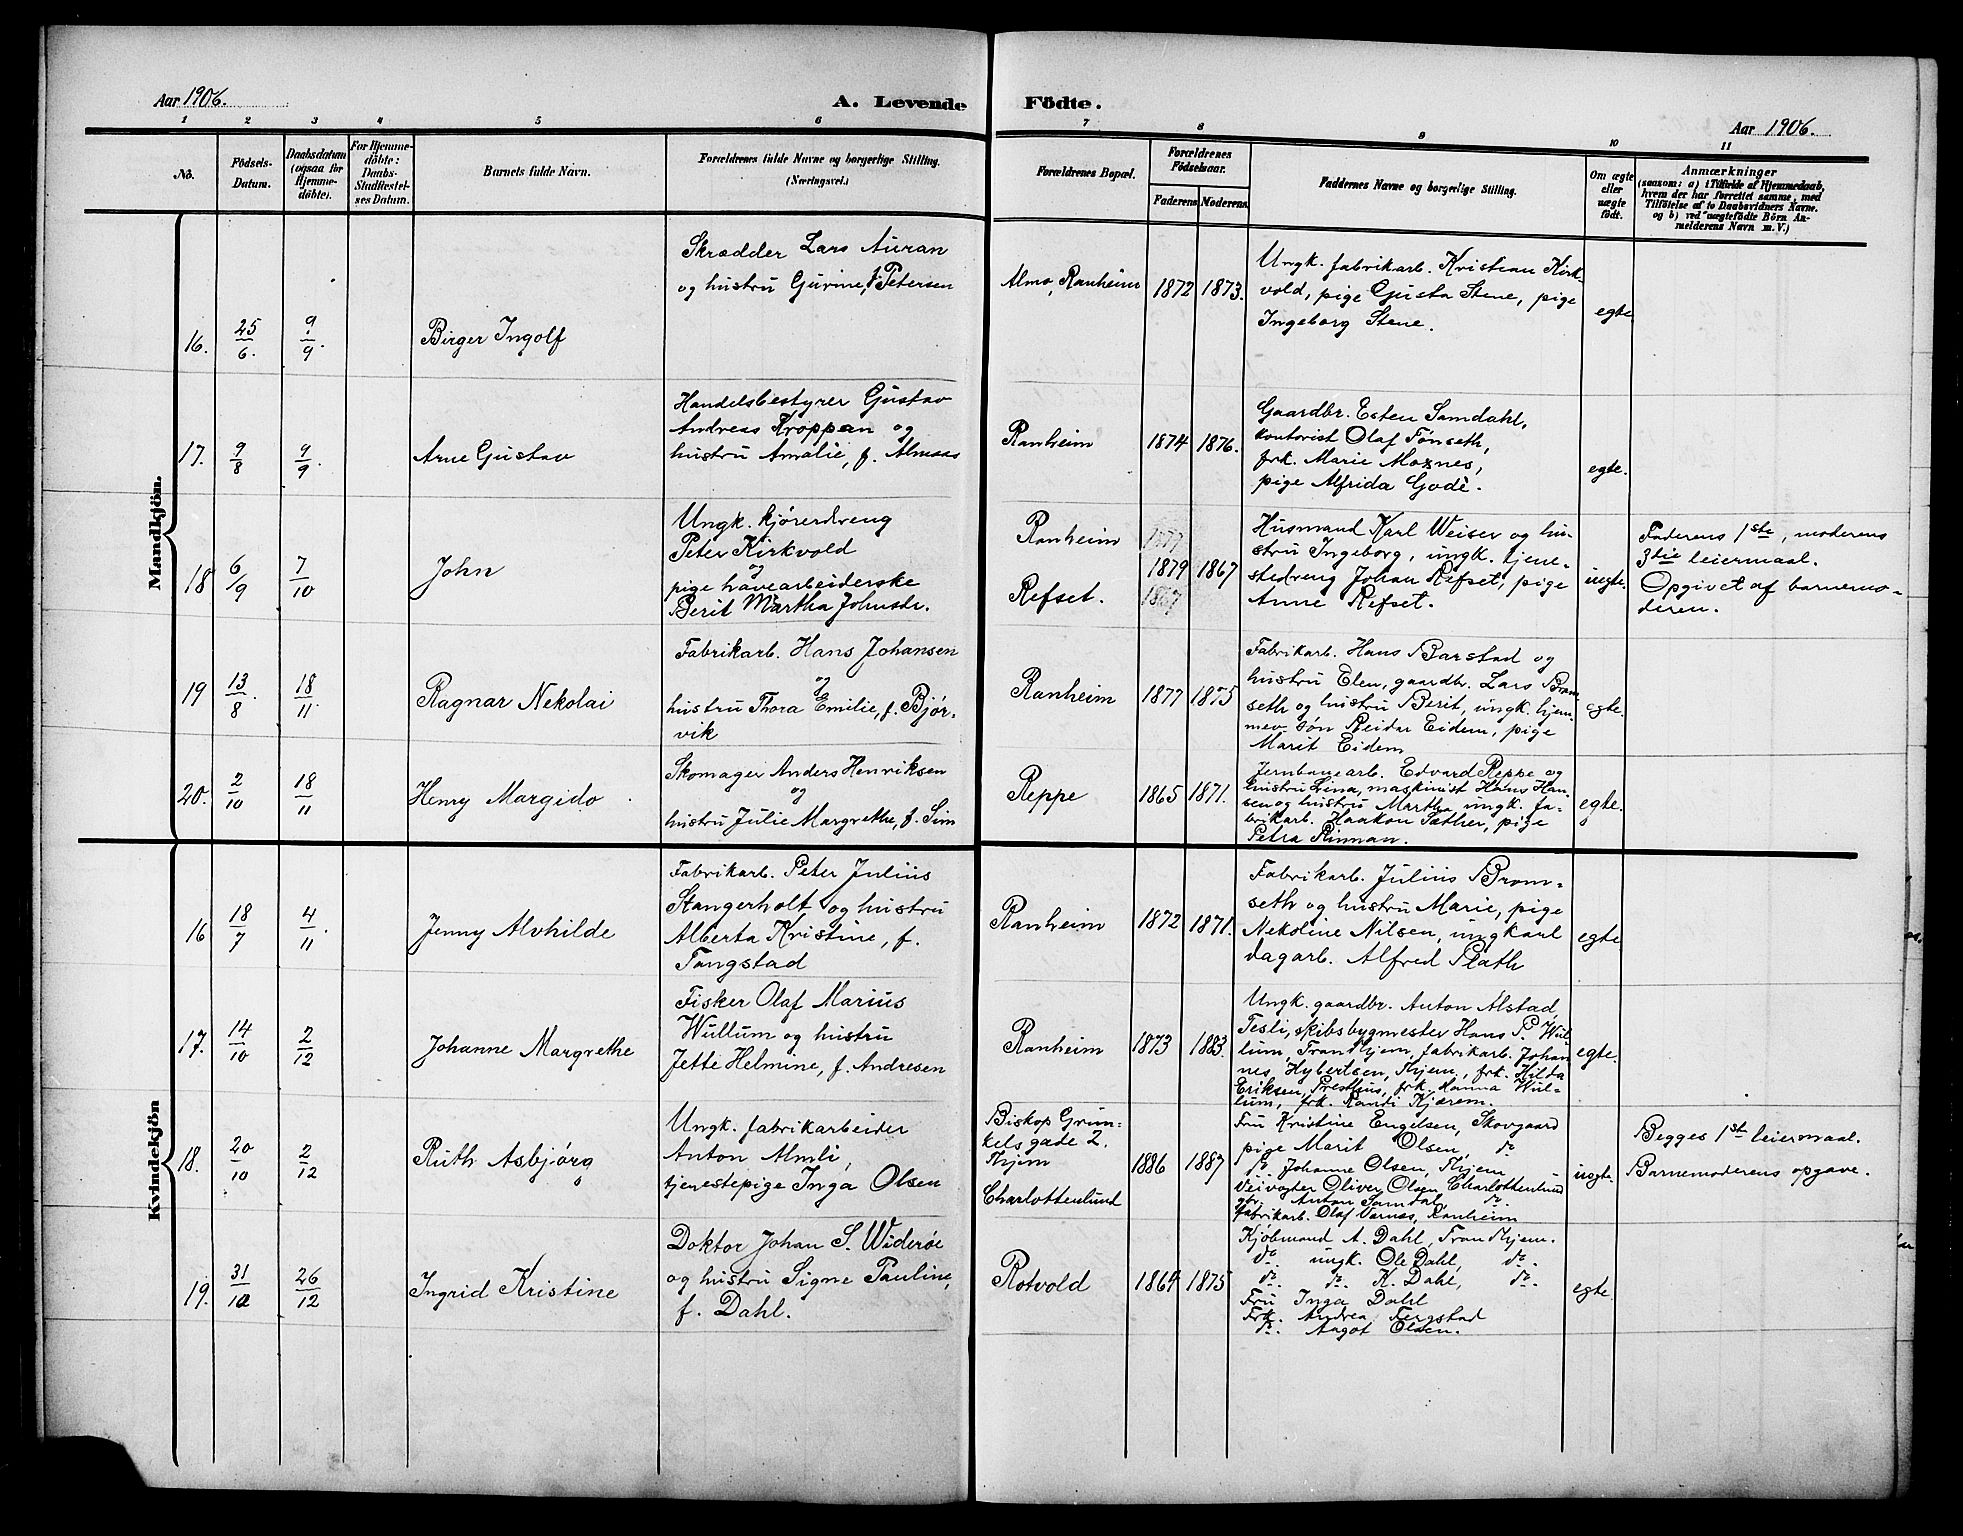 Aar 1906.
A. Levende Födte.
Aar 1906.
1 2 3 4 5 6 7 8 9 10 11
No.
Födsels-
Datum.
Daabsdatum
(ogsaa for
Hjemme-
döbte).
For Hjemme-
döbte:
Daabs-
Stadfæstel-
ses Datum.
Barnets fulde Navn.
Forældrenes fulde Navne og borgerlige Stilling.
(Næringsvei.)
Forældrenes Bopæl.
Forældrenes
Födselsaar.
Faderens
Moderens
Faddernes Navne og borgerlige Stilling.
Om ægte
eller
uægte
födt.
Anmærkninger
(saasom: a) i Tilfælde af Hjemmedaab,
hvem der har forrettet samme, med
Tilföielse af to Daabsvidners Navne.
og b) ved uægtefödte Börn An-
melderens Navn m. V.)
Mandkjön.
16.
25/6.
9/9
Birger Ingolf
Skrædder Lars Auran
og hustru Gurine, f. Petersen
Almo, Ranheim
1872
1873.
Ungk. fabrikarb. Kristian Kirk-
vold, pige Gusta Stene, pige
Ingeborg Stene.
egte
17.
9/8
9/9.
Arne Gustav
Handelsbestyrer Gustav
Andreas Kroppan og
hustru Amalie, f. Almaas
Ranheim
1874
1876.
Gaardbr. Esten Samdahl,
kontorist Olaf Fønseth,
frk. Marie Moxnes,
pige Alfrida Godè.
egte.
18
6/9
7/10
John
Ungk. kjørerdreng
Peter Kirkvold
og
pige havearbeiderske
Berit Martha Johnsdr.
Ranheim
Refset.
1877
1879
1867
1867
Husmand Karl Weiser og hu-
stru Ingeborg, ungk. tjene-
stedreng Johan Refset, pige
Anne Refset.
uegte.
Faderens 1ste, moderens
3tie leiermaal.
Opgivet af barnemo-
deren.
19
13/8.
18/11
Ragnar Nekolai
Fabrikarb. Hans Johansen
og
hustru Thora Emilie, f. Bjør-
vik
Ranheim
1877
1875
Fabrikarb. Hans Barstad og
hustru Elen, gaardbr. Lars Brom-
seth og hustru Berit, ungk. hjem-
mev. søn Reidar Eidem, pige
Marit Eidem
egte.
20.
2/10
18/11
Henry Margido.
Skomager Anders Henriksen
og
hustru Julie Margrethe, f. Sim
Reppe
1865
1871.
Jernbanearb. Edvard Reppe og
hustru Lina, maskinist Hans Han-
sen og hustru Martha, ungk. fa-
brikarb. Haakon Sæther, pige
Petra Rinnan.
egte.
Kvindekjön
16
18/7
4/11.
Jenny Alvhilde
Fabrikarb. Peter Julius
Stangerholt og hustru
Alberta Kristine, f.
Tangstad
Ranheim
1872
1871.
Fabrikarb. Julius Brom-
seth og hustru Marie, pige
Nekoline Nilsen, ungkarl
dagarb. Alfred Plath
egte
17.
14/10
2/12
Johanne Margrethe
Fisker Olaf Marius
Wullum og hustru
Jette Helmine, f. Andresen
Ranheim
1873
1883.
Ungk. gaardbr. Anton Alstad,
Tesli, skibsbygmester Hans P. Wul-
lum, Trondhjem, fabrikarb. Johan-
nes Hybertsen, Thjem., frk. Hilda
Eriksen, Presthus, frk. Hanna Wul-
lum, frk. Randi Kjærem.
egte.
18.
20/10
2/12
Ruth Asbjørg
Ungk. fabrikarbeider
Anton Almli,
tjenestepige Inga Olsen
Biskop Grun-
kelsgade 2.
Thjem
Charlottenlund
1886
1887
Fru Kristine Engelsen, Skovgaard
pige Marit Olsen, do
do. Johanne Olsen, Thjem
Veivogter Oliver Olsen Charlottenlund
gbr. Anton Samdal, do.
fabrikarb. Olaf Varnæs, Ranheim
uegte.
Begges 1ste leiermaal.
Barnemoderens opgave.
19.
31/10
26/12
Ingrid Kristine
Doktor Johan S. Widerøe
og hustru Signe Pauline,
f. Dahl.
Rotvold
1864
1875
Kjøbmand A. Dahl, Trondhjem.
do. ungk. Ole Dahl, do.
do. do. K. Dahl, do.
Fru Inga Dahl
Frk. Andrea Fergstad
do. Aagot Olsen.
egte.